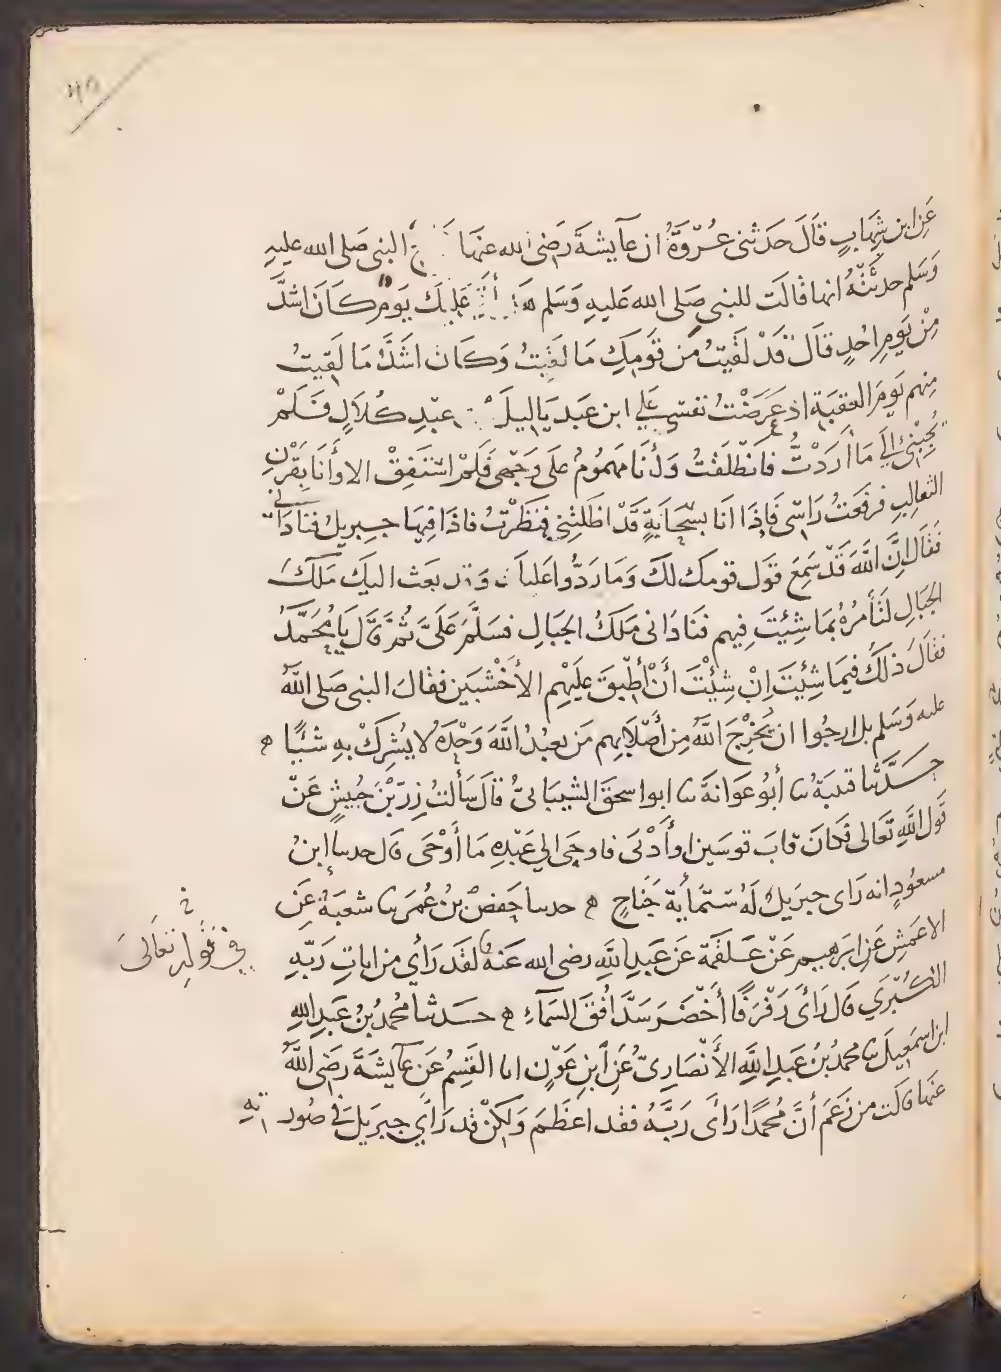 عَنِ ابن شِهَابٍ قَالَ حَدثنى عُرْوَةُ ان عآيشةَ رَضى الله عنهَا النبى صَلى الله عليهِ
وَسَلم حدثَتْهُ انها قالَت للنبى صَلى الله عَليهِ وَسَلم عَلَيك يَومٌ كَانَ اشدَّ
مِنْ يَومِ احُدٍ قَال قَدْ لَقيتُ مِن قَومِكِ مَا لَقِيتُ وَكَان اشَدَّ مَا لَقِيتُ
مِنهم يَومَ العقبَةِ اذ عَرَضْتُ نفسى عَلَى ابن عَبد يَاليلَ عبْدِ كُلَالٍ فَلَمْ
يُجِبْنى الَى مَا أَرَدْتُّ فانطَلقتُ وَأَنَا مَهمُومٌ علَى وَجْهى فَلَمْ اسْتَفِقْ الا وأَنَا بقَرْنِ
الثعالِبِ فرفعَتُ رَاسى فَإِذَا انَا بسَحَابَةٍ قَدْ اظَلتْنِى فنَظَرْتُ فاذَا فِيهَا جبريلُ فنادَانى
فقَال اِنَّ اللَّهَ قَدْ سَمِعَ قَول قومك لكَ وَمَا رَدُّوا عَليكَ وَقد بعَث اليَك مَلَكَ
الجبَالِ لتَأْمُرَهُ بمَا شِيْتَ فِيهم فنَادَانى مَلَكُ الجبَالِ فسَلَّمَ عَلَىَّ ثُمَّ قَالَ يَا مُحَمَّدُ
فقالَ ذلكَ فيمَا شِئْتَ اِنْ شِئْتَ أَنْ أُطْبِقَ عَلَيْهِم الأَخْشَبَين فقالَ النبى صَلى اللَّهُ
عليه وَسَلم بل ارجُوا ان يُخْرِجَ اللَّهُ مِن أَصْلَابِهم مَن يعبُدُ اللَّهَ وَحْدَهُ لا يُشرِكُ بهِ شيئًا ه
حَدَّثنا قتيبَةُ نا أَبُو عَوَانةَ نا ابو اسحقَ الشيبَانىُّ قالَ سَأَلتُ زِرَّ بْنَ حُبيشٍ عَنْ
قَول اللَّهِ تعَالى فَكَانَ قابَ قوسَين او أَدْنَى فاوحَى الى عَبْدِهِ مَا أَوْحَى قال حدثنا ابنُ
مسعُودٍ انه رَاى جبرَيلَ لَهُ سِتّمايَة جَنَاحٍ ه حدثنا حَفصُ بْنُ عُمَرَ نا شعبَةُ عَنِ
الاعمَشِ عَنِ ابرَهيم عَنْ عَلقَمَة عَن عَبدِ اللَّهِ رضى الله عَنهُ لقَد رَأَى من ايَاتِ رَبِّهِ
الكُبْرَى قَال رَأَى رَفْرَفًا أَخْضَرَ سَدَّ أُفُقَ السَّمَآءِ ه حَدثنا مُحمدُ بْنُ عَبدِ اللهِ
ابن اسمَعيلَ نا محمدُ بْنُ عَبدِ اللَّهِ الأَنْصَارِىُّ عَنِ ابنِ عَوْنٍ انا القَسِمُ عَن عآيشَةَ رَضى اللَّهُ
عَنهَا قَالَت من زَعَمَ أَنَّ مُحمدًا رَأَى رَبَّهُ فقد اعظَمَ وَلكِنْ قد رَأَى جبرَيلَ فى صُورتهِ
فى قَولهِ تعَالىَ